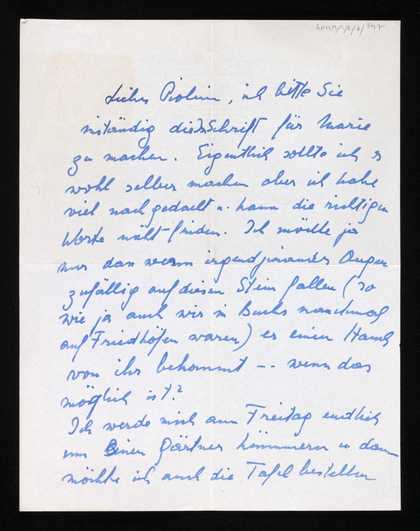 Liebes Violinn, ich bitte Sie
inständig die Inschrift für Marie
zu machen. Eigentlich sollte ich es
wohl selber machen aber ich habe
viel nachgedacht u. kann die richtigen
Worte nicht finden. Ich möchte ja
nur dass wenn irgendjemandes Augen
zufällig auf diesen Stein fallen (so
wie ja auch wir in Buchs manchmal
auf Friedhöfen waren) er einen Hauch
von ihr bekommt -- wenn das
möglich ist?
Ich werde mich am Freitag endlich
um einen Gärtner kümmern u dann
möchte ich auch die Tafel bestellen